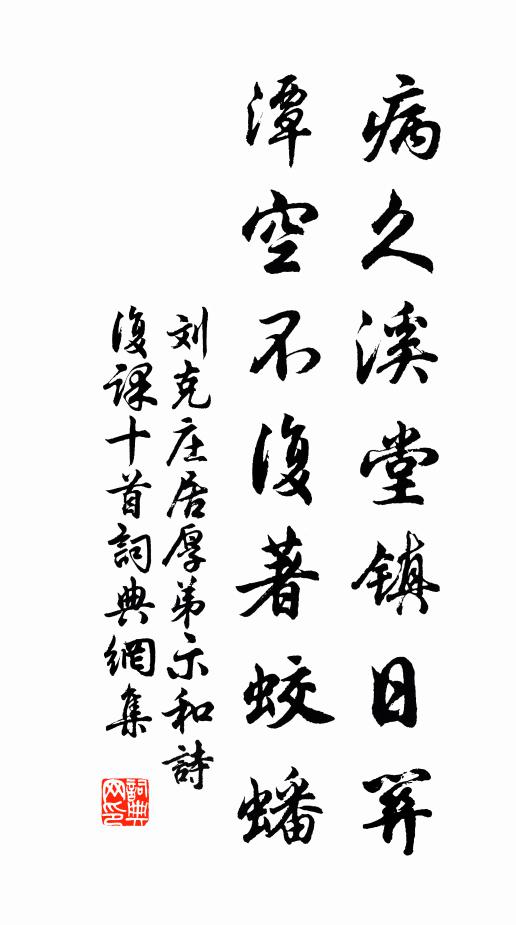 病久溪堂镇日關
潭空不復著蛟蟠
刘克庄居厚弟示和詩
復課十首詞典網集
詞典网印